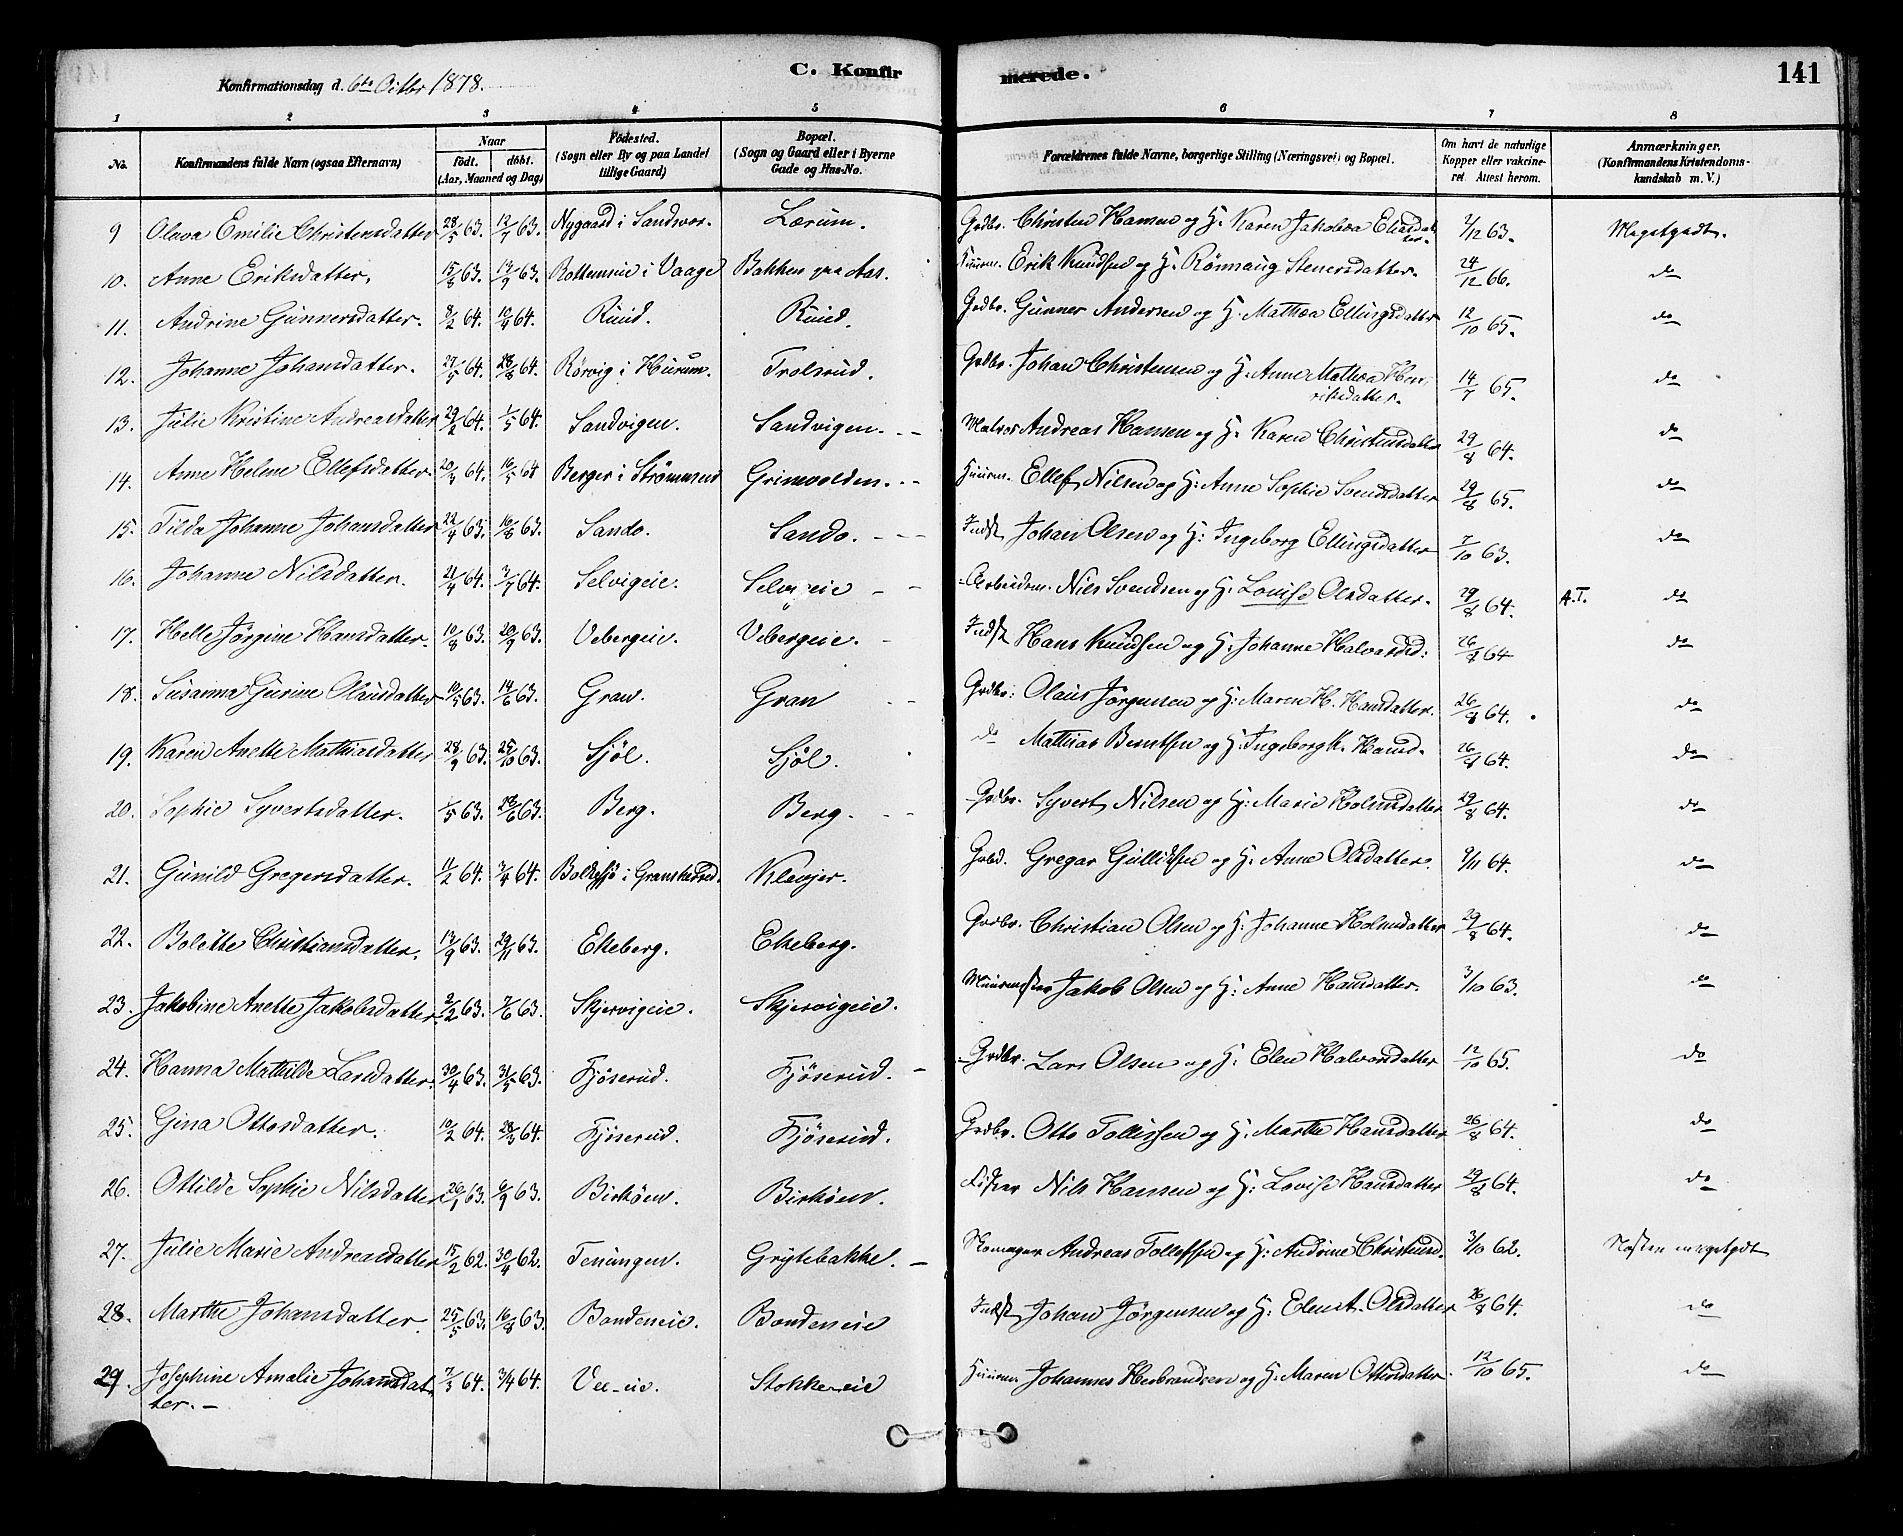 Konfirmationsdag d. 6te Octbr 1878.
C. Konfirmerede.
141
1 2 3 4 5 6 7 8
No. Konfirmandens fulde Navn (ogsaa Efternavn) Naar født. døbt. (Aar, Maaned og Dag) Fødested. (Sogn eller By og paa Landet tillige Gaard) Bopæl. (Sogn og Gaard eller i Byerne Gade og Hus-No. Forældrenes fulde Navne, borgerlige Stilling (Næringsvei) og Bopæl. Om havt de naturlige Kopper eller vakcineret. Attest herom. Anmærkninger. (Konfirmandens Kristendomskundskab m. V.)
9 Olava Emilie Christensdatter 28/5 63. 12/7 63. Nygaard i Sandsvær. Lærum. Grdbr. Christen Hansen og H. Karen Jakobæa Eliasdatter. 2/12 63. Megetgodt.
10. Anne Eriksdatter. 15/8 63. 13/9 63. Rottenseie i Vaage Bakken paa Aas. Huusm. Erik Knudsen og H. Rönnaug Stenersdatter. 24/12 66. do
11. Andrine Gunnersdatter. 8/2 64. 10/4 64. Ruud. Ruud. Grdbr. Gunner Andersen og H. Mathea Ellingsdatter 12/10 65. do
12. Johanne Johansdatter. 27/5 64. 28/8 64. Rörvig i Hurum. Trolsrud. Grdbr. Johan Christensen og H. Anne Mathea Henriksdatter. 14/7 65. do
13. Julie Kristine Andreasdatter 29/2 64. 1/5 64. Sandvigen. Sandvigen. Matros Andreas Hansen og H. Karen Christensdatter 29/8 64. do
14. Anne Helene Ellefsdatter. 20/3 64. 16/5 64 Berger i Strømmen Grimsolden. Huusm. Ellef Nilsen og H. Anne Sophie Svendsdatter 29/8 65. do
15. Tilda Johanne Johansdatter 22/4 63. 16/8 63. Sando. Sando. Indst Johan Olsen og H: Ingeborg Ellingsdatter 7/10 63. do
16. Johanne Nilsdatter. 21/4 64. 3/7 64. Selvigeie. Selvigeie Arbeidsm. Nils Svendsen og H. Lovise Olsdatter. 29/8 64. A.T. do
17. Helle Jørgine Hansdatter. 10/8 63. 20/9 63. Vebergeie. Vebergeie. Indst Hans Knudsen og H. Johanne Halvorsd: 26/8 64 do
18. Susanna Gurine Olausdatter 10/5 63. 14/6 63. Gran. Gran Grdbr: Olaus Jørgensen og H: Maren H. Hansdatter. 26/8 64. do
19. Karen Anette Mathiasdatter 28/9 63. 25/10 63. Sjöl. Sjöl. do Mathias Berntsen og H. Ingeborg K. Hansd. 26/8 64. do
20. Sophie Syvertsdatter. 1/5 63. 28/6 63. Berg. Berg. Grdbr. Syvert Nilsen og H: Marie Holmsdatter 29/8 64. do
21. Gunild Gregersdatter. 11/2 64. 3/4 64. Bolkesjø i Gransherred. Klevjer. Grbd. Gregar Gullichsen og H. Anne Olsdatter. 9/11 64. do
22. Bolette Christiansdatter. 13/9 63. 29/11 63. Ekeberg. Ekeberg. Grdbr. Christian Olsen og H. Johanne Holmsdatter 29/8 64. do
23. Jakobine Anette Jakobsdatter. 2/2 63. 7/6 63. Skjervigeie. Skjervigeie. Muurmester Jakob Olsen og H: Anne Hansdatter. 3/10 63. do
24. Hanna Mathilde Larsdatter. 30/4 63. 31/5 63. Fjöserud. Fjöserud. Grdbr. Lars Olsen og H. Elen Halvorsdatter 12/10 65. do
25. Gina Ottosdatter. 10/2 64. 28/3 64. Fjöserud. Fjöserud. Grdbr. Otto Tollefsen og H. Marthe Hansdatter 26/8 64. do
26. Ottilde Sophie Nilsdatter 26/1 63. 6/9 63. Birköen. Birköen. Fisker Nils Hansen og H. Lovise Hansdatter 29/8 64. do
27. Julie Marie Andreasdatter 15/2 62. 30/4 62. Teningen. Grytebakke. Skomager Andreas Tollefsen og H: Andrine Christensd. 3/10 62. Næsten megetgodt
28. Marthe Johansdatter. 25/5 63. 16/8 63. Bondeneie. Bondeneie Indst Johan Jørgensen og H. Elen A. Olsdatter 26/8 64. do
29. Josephine Amalie Johansdatter. 7/3 64. 3/4 64. Vee-eie. Stokkeneie Huusm Johannes Herbrandsen og H. Maren Ottersdatter. 12/10 65. do